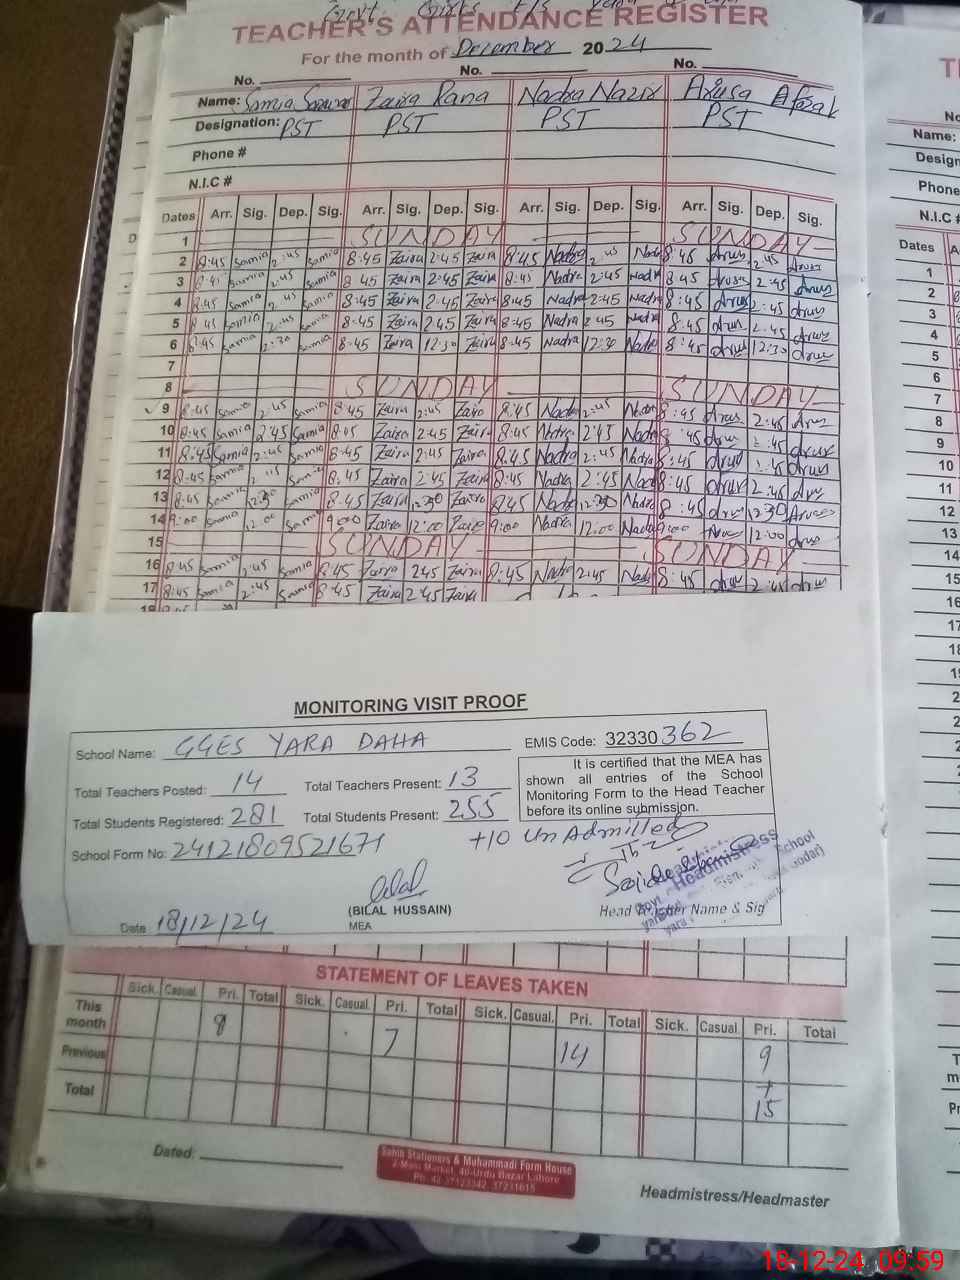 TEACHER'S ATTENDANCE REGISTER
For the month of December 2024
No. No. No.
Name: Samia Zaira Rana Nadra Nazir Arusa Afzal
Designation: PST PST PST PST
Phone #
N.I.C #
Dates Arr. Sig. Dep. Sig. Arr. Sig. Dep. Sig. Arr. Sig. Dep. Sig. Arr. Sig. Dep. Sig.
1 SUNDAY SUNDAY
2 8:45 Samia 2:45 Samia 8:45 Zaira 2:45 Zaira 8:45 Nadra 2:45 Nad 8:45 Arus 2:45 Arus
3 8:45 Samia 2:45 Samia 8:45 Zaira 2:45 Zaira 8:45 Nadra 2:45 Nadra 8:45 Arusa 2:45 Arus
4 8:45 Samia 2:45 Samia 8:45 Zaira 2:45 Zaira 8:45 Nadra 2:45 Nadra 8:45 Arus 2:45 Arus
5 8:45 Samia 2:45 Samia 8:45 Zaira 2:45 Zaira 8:45 Nadra 2:45 Nadra 8:45 Arus 2:45 Arus
6 8:45 Samia 2:30 Samia 8:45 Zaira 12:30 Zaira 8:45 Nadra 12:30 Nadra 8:45 Arus 12:30 Arus
7
8 SUNDAY SUNDAY
9 8:45 Samia 2:45 Samia 8:45 Zaira 2:45 Zaira 8:45 Nadra 2:45 Nadra 8:45 Arus 2:45 Arus
10 8:45 Samia 2:45 Samia 8:45 Zaira 2:45 Zaira 8:45 Nadra 2:45 Nadra 8:45 Arus 2:45 Arus
11 8:45 Samia 2:45 Samia 8:45 Zaira 2:45 Zaira 8:45 Nadra 2:45 Nadra 8:45 Arus 2:45 Arus
12 8:45 Samia 2:45 Samia 8:45 Zaira 2:45 Zaira 8:45 Nadra 2:45 Nadra 8:45 Arus 2:45 Arus
13 8:45 Samia 12:30 Samia 8:45 Zaira 12:30 Zaira 8:45 Nadra 12:30 Nadra 8:45 Arus 12:30 Arus
14 9:00 Samia 12:00 Samia 9:00 Zaira 12:00 Zaira 9:00 Nadra 12:00 Nadra 9:00 Arus 12:00 Arus
15 SUNDAY SUNDAY
16 8:45 Samia 2:45 Samia 8:45 Zaira 2:45 Zaira 8:45 Nadra 2:45 Nadra 8:45 Arus 2:45 Arus
17 8:45 Samia 2:45 Samia 8:45 Zaira 2:45 Zaira 8:45 Arus 2:45 Arus
MONITORING VISIT PROOF
School Name: GGES YARA DAHA
EMIS Code: 32330362
Total Teachers Posted: 14 Total Teachers Present: 13
Total Students Registered: 281 Total Students Present: 255
It is certified that the MEA has
shown all entries of the School
Monitoring Form to the Head Teacher
before its online submission.
School Form No: 24121809521671
+10 UnAdmitted
Headmistress
Date 18/12/24
(BILAL HUSSAIN)
MEA
Head Teacher Name & Sig
STATEMENT OF LEAVES TAKEN
Sick. Casual. Pri. Total Sick. Casual. Pri. Total Sick. Casual. Pri. Total Sick. Casual. Pri. Total
This month 8 7 14 9
Previous +
Total 15
Dated:
Sahib Stationers & Muhammadi Form House
2-Mani Market, 40-Urdu Bazar Lahore
Ph: 42-37123342, 37231615
Headmistress/Headmaster
Name:
Phone
N.I.C #
Dates
1
2
3
4
5
6
7
8
9
10
11
12
13
14
15
16
17
18-12-24 09:59